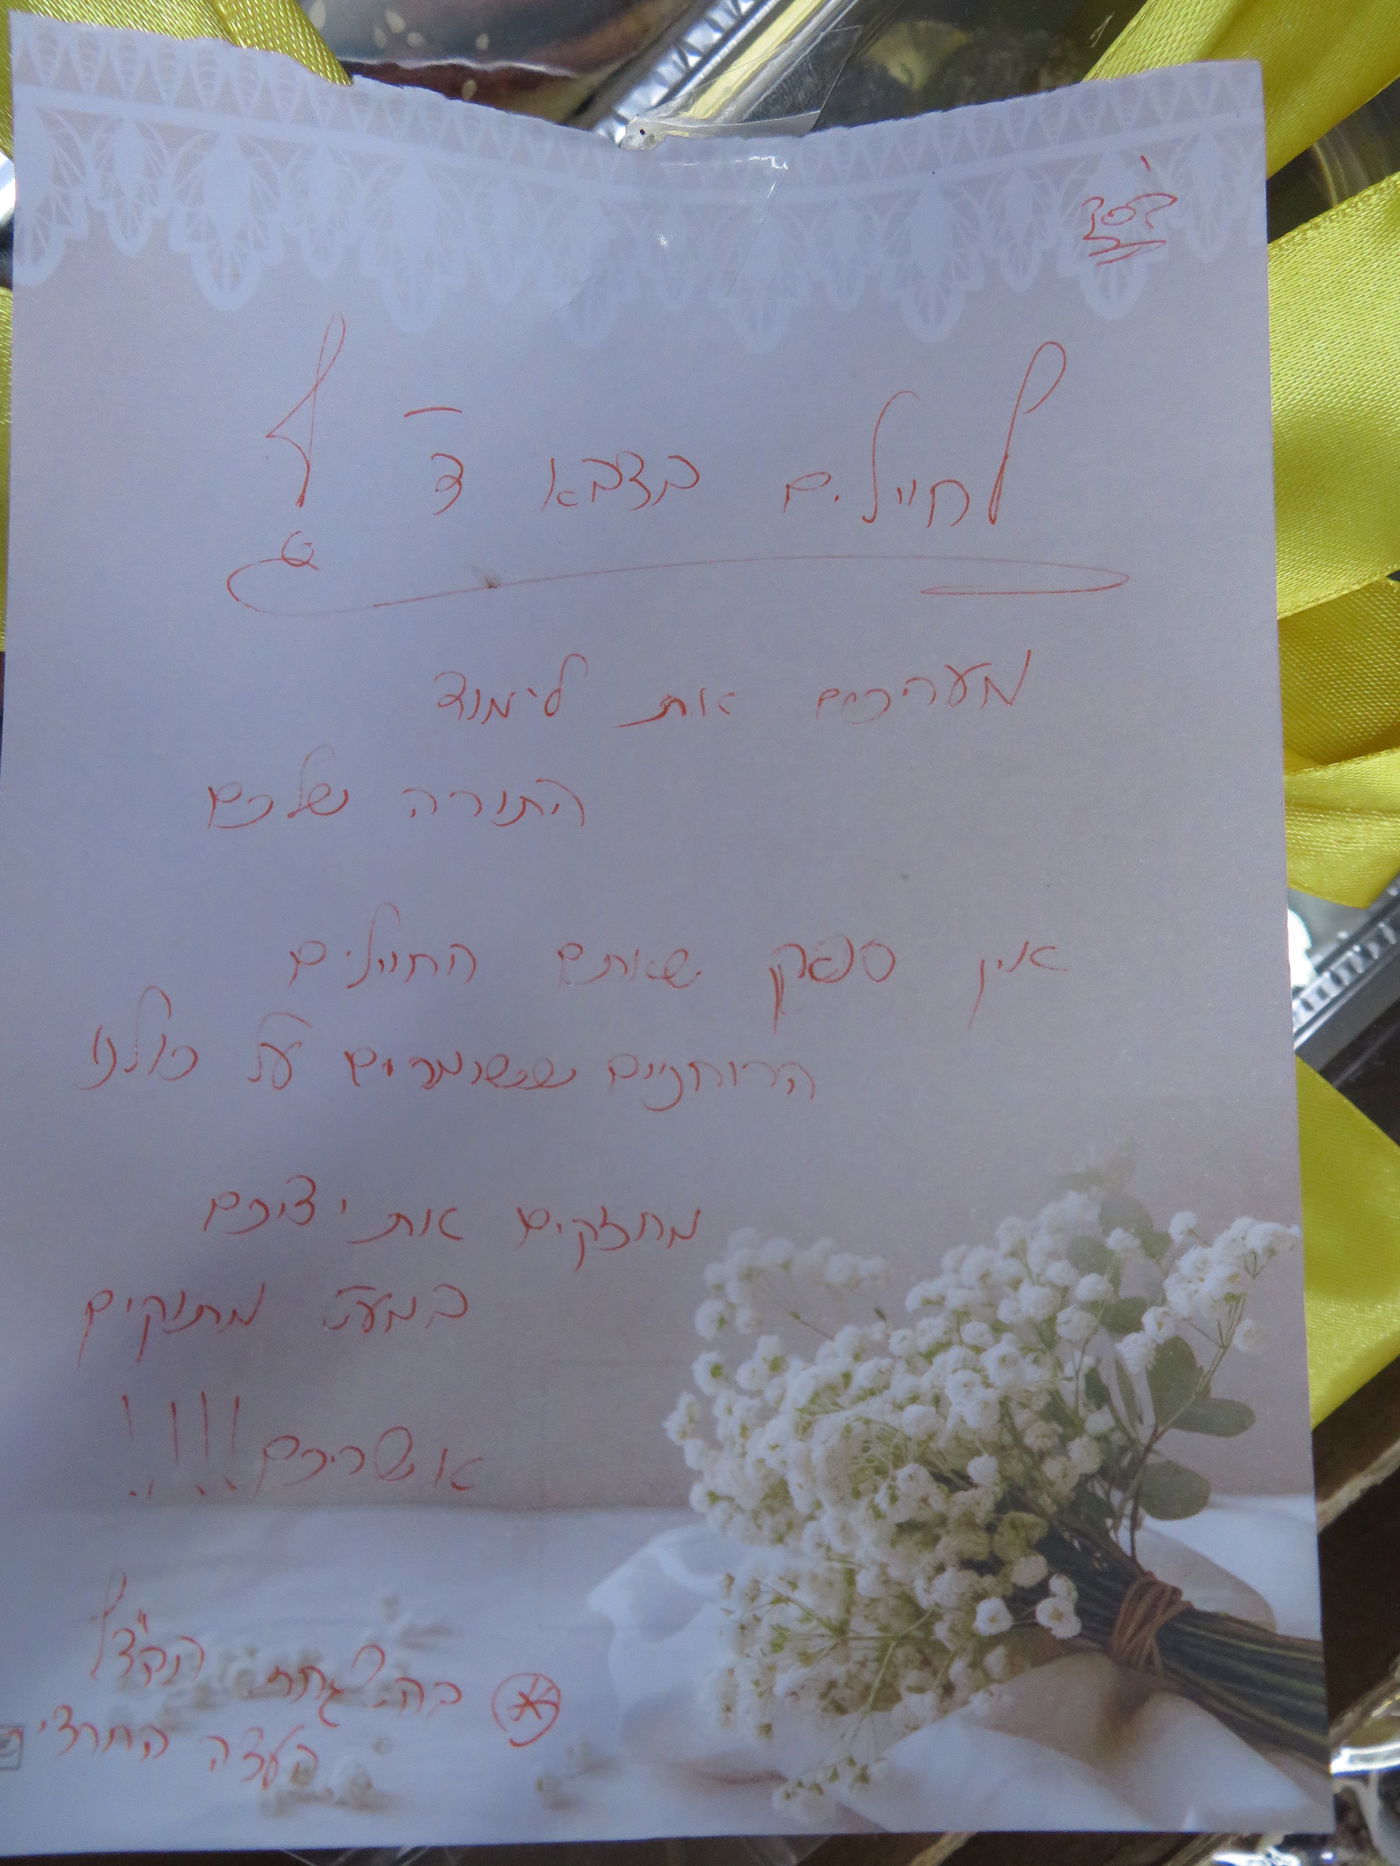 בס"ד
לחיילים בצבא ד'
מעריכים את לימוד
התורה שלכם
אין ספק שאתם החיילים
הרוחניים ששומרים על כולנו
מחזקים את ידיכם
במעט מתוקים
אשריכם!!!!
בהשגחת הבד"ץ
העדה החרדי